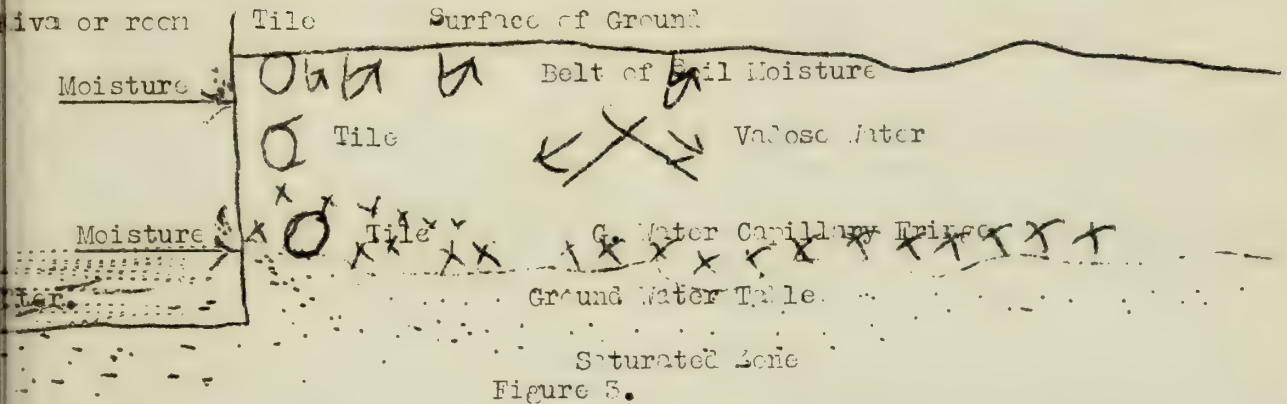 iva or room Tile Surface of Ground
Moisture Belt of Soil Moisture
Tile Vadose Water
Moisture Tile G. Water Capillary Fringe
ter. Ground Water Table
Saturated Zone
Figure 3.